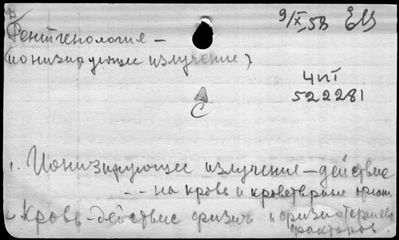 Рентгенология –
(ионизирующее излучение)
9/X,58
522281
С
1. Ионизирующее излучение – действие
-- на кровь и кроветворные орган.
2. Кровь – действие физич. и физиотерапев.
факторов.